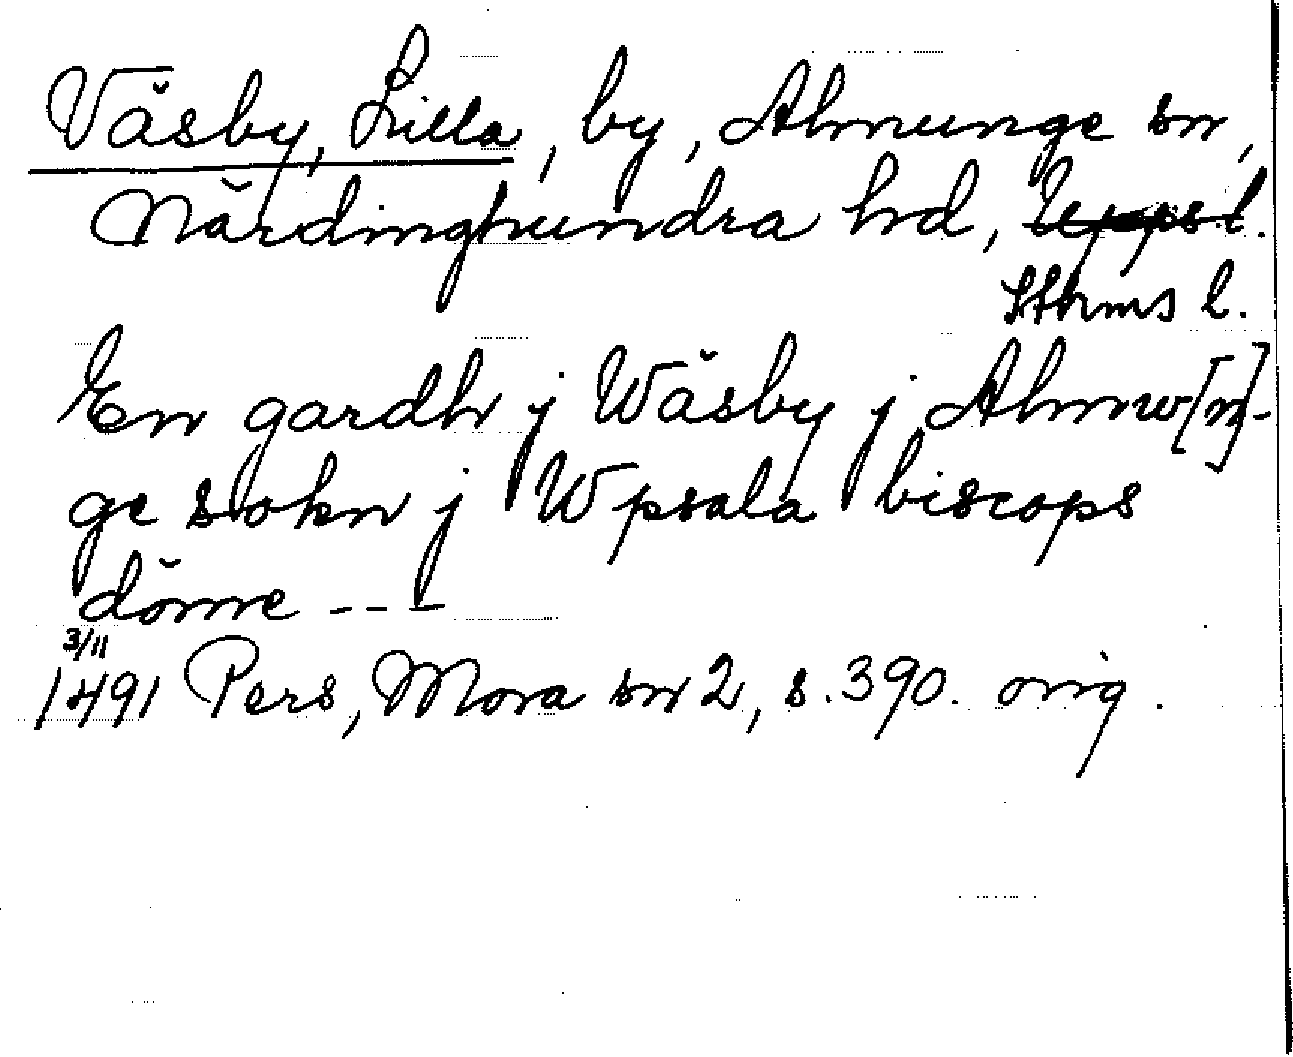 Väsby, Lilla, by, Almunge sn,
Närdinghundra hd, Upps. l.
Sthms l.
En gardh j Wäsby j Almw[n]-
ge sokn j Wpsala biscops
döme ---
3/11
1491 Pers, Mora sn 2, s. 390. orig.